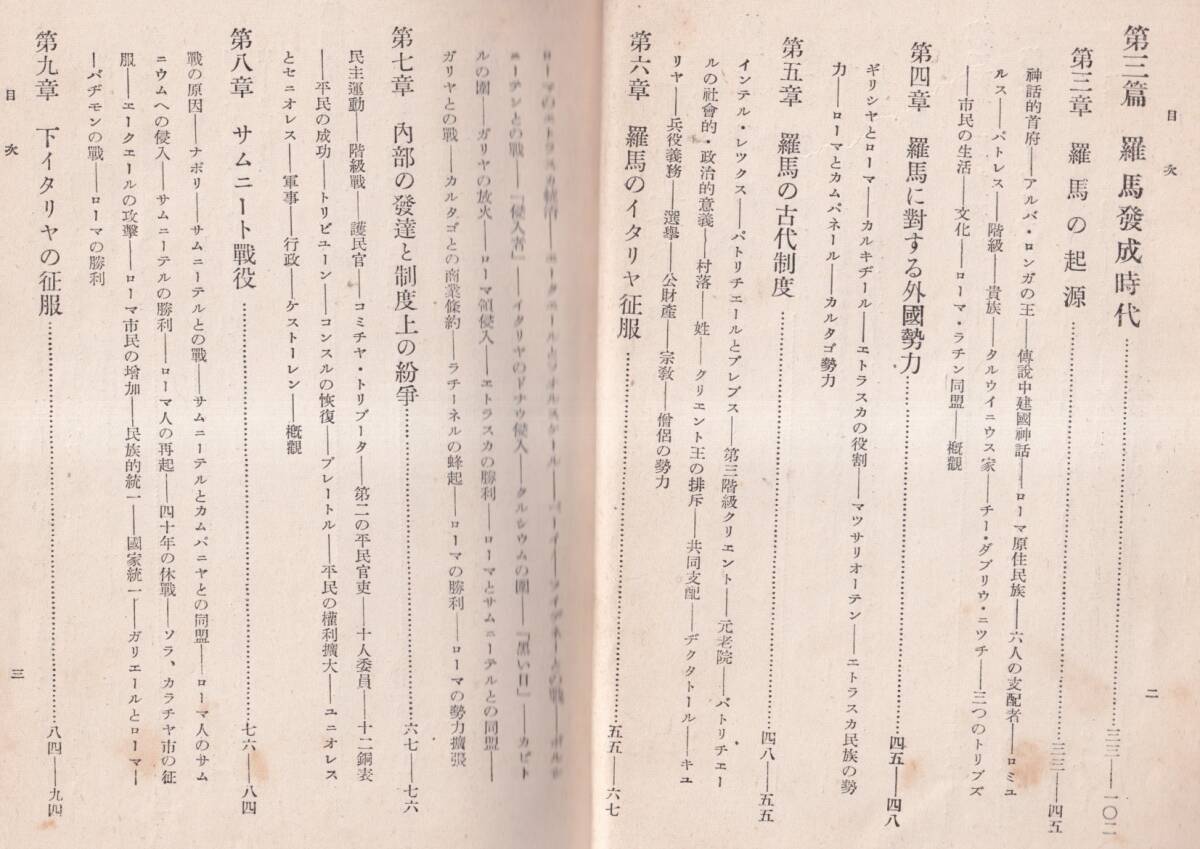 目次
二
第三篇 羅馬發成時代……三三——一〇二
第三章 羅馬の起源……三三——四五
神話的首府——アルバ・ロンガの王——傳說中建國神話——ローマ原住民族——六人の支配者——ロミユ
ルス——パトレス——階級——貴族——タルウイニウス家——チー・ダブリウ・ニツチ——三つのトリブズ
——市民の生活——文化——ローマ・ラチン同盟——槪觀
第四章 羅馬に對する外國勢力……四五——四八
ギリシヤとローマ——カルキヂール——エトラスカの役割——マツサリオーテン——エトラスカ民族の勢
力——ローマとカムパネール——カルタゴ勢力
第五章 羅馬の古代制度……四八——五五
インテル・レツクス——パトリチエールとプレブス——第三階級クリエント——元老院——パトリチエー
ルの社會的・政治的意義——村落——姓——クリエント王の排斥——共同支配——デクタトール——キユ
リヤ——兵役義務——選擧——公財產——宗敎——僧侶の勢力
第六章 羅馬のイタリヤ征服……五五——六七
ローマのエトラスカ統治——エークエールとヴオルスケール——
ニーテンとの戰——「侵入者」——イタリヤのドナウ侵入——クルシウムの圍——「黑い日」——カピト
ルの圍——ガリヤの放火——ローマ領侵入——エトラスカの勝利——ローマとサムニーテルとの同盟——
ガリヤとの戰——カルタゴとの商業條約——ラチーネルの蜂起——ローマの勝利——ローマの勢力擴張
第七章 內部の發達と制度上の紛爭……六七——七六
民主運動——階級戰——護民官——コミチヤ・トリブータ——第二の平民官吏——十人委員——十二銅表
——平民の成功——トリビューン——コンスルの恢復——プレートル——平民の權利擴大——ユニオレス
とセニオレス——軍事——行政——ケストーレン——槪觀
第八章 サムニート戰役……七六——八四
戰の原因——ナポリ——サムニーテルとの戰——サムニーテルとカムパニヤとの同盟——ローマ人のサム
ニウムへの侵入——サムニーテルの勝利——ローマ人の再起——四十年の休戰——ソラ、カラチヤ市の征
服——エークエールの攻擊——ローマ市民の增加——民族的統一——國家統一——ガリエールとローマ—
—バヂモンの戰——ローマの勝利
第九章 下イタリヤの征服……八四——九四
目次
三